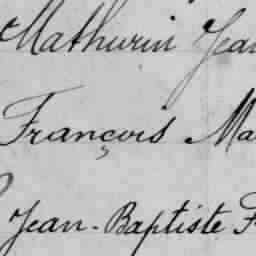 Mathurin Jean
François Ma
Jean-Baptiste F